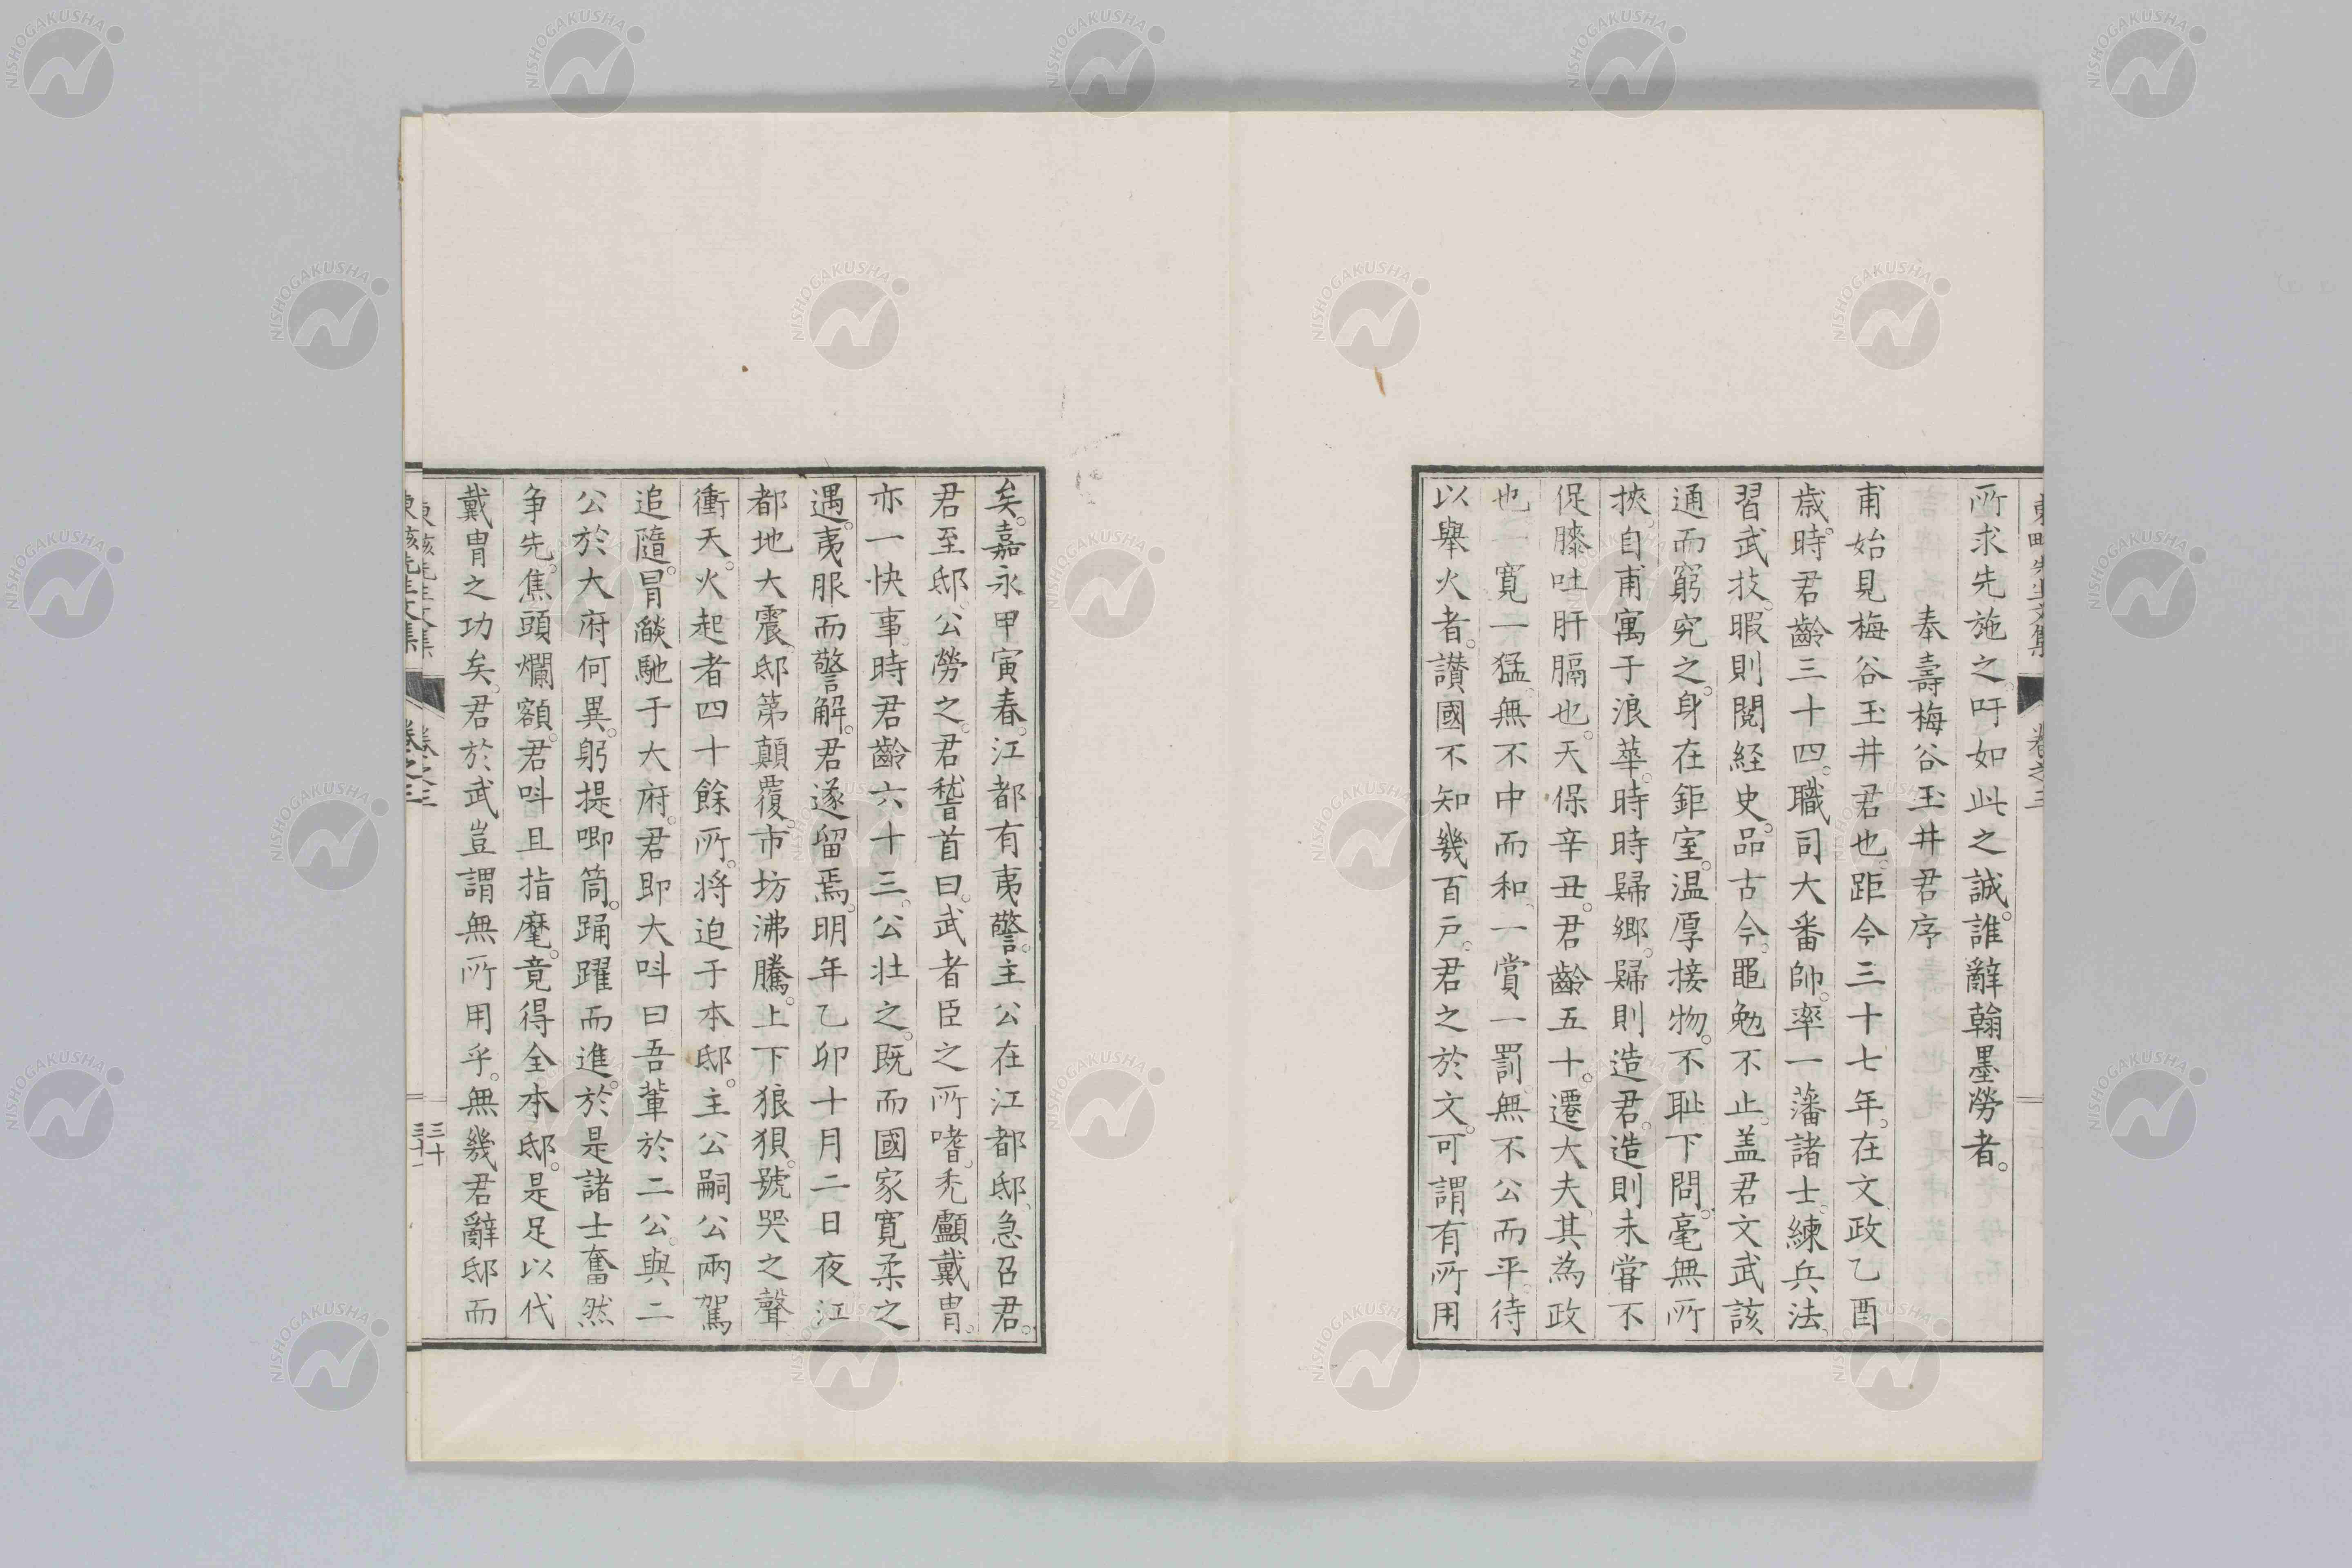 所求先施之。吁如此之誠。誰辭翰墨勞者。
奉壽梅谷玉井君序
甫始見梅谷玉井君也。距今三十七年。在文政乙酉
歳。時君齡三十四。職司大番帥。率一藩諸士。練兵法。
習武技。暇則閲経史。品古今。黽勉不止。盖君文武該
通而窮究之。身在鉅室。温厚接物。不耻下問。毫無所
挾。自甫寓于浪華。時時歸郷。歸則造君。造則未嘗不
促膝吐肝膈也。天保辛丑。君齡五十。遷大夫。其為政
也。一寛一猛。無不中而和。一賞一罰。無不公而平。待
以擧火者。讃國不知幾百戸。君之於文。可謂有所用
矣。嘉永甲寅春。江都有夷警。主公在江都邸。急召君。
君至邸。公勞之。君稽首曰。武者臣之所嗜。禿顱戴冑。
亦一快事。時君齡六十三。公壮之。既而國家寛柔之
遇。夷服而警解。君遂留焉。明年乙卯十月二日夜江
都地大震。邸第顛覆。市坊沸騰。上下狼狽。號哭之聲
衝天。火起者四十餘所。将迫于本邸。主公嗣公兩駕
追隨。冒燄馳于大府。君即大呌曰吾輩於二公。與二
公於大府何異。躬提喞筒。踊躍而進。於是諸士奮然
争先。焦頭爛額。君呌且指麾。竟得全本邸。是足以代
戴冑之功矣。君於武豈謂無所用乎。無幾君辭邸而
卷之三
三十